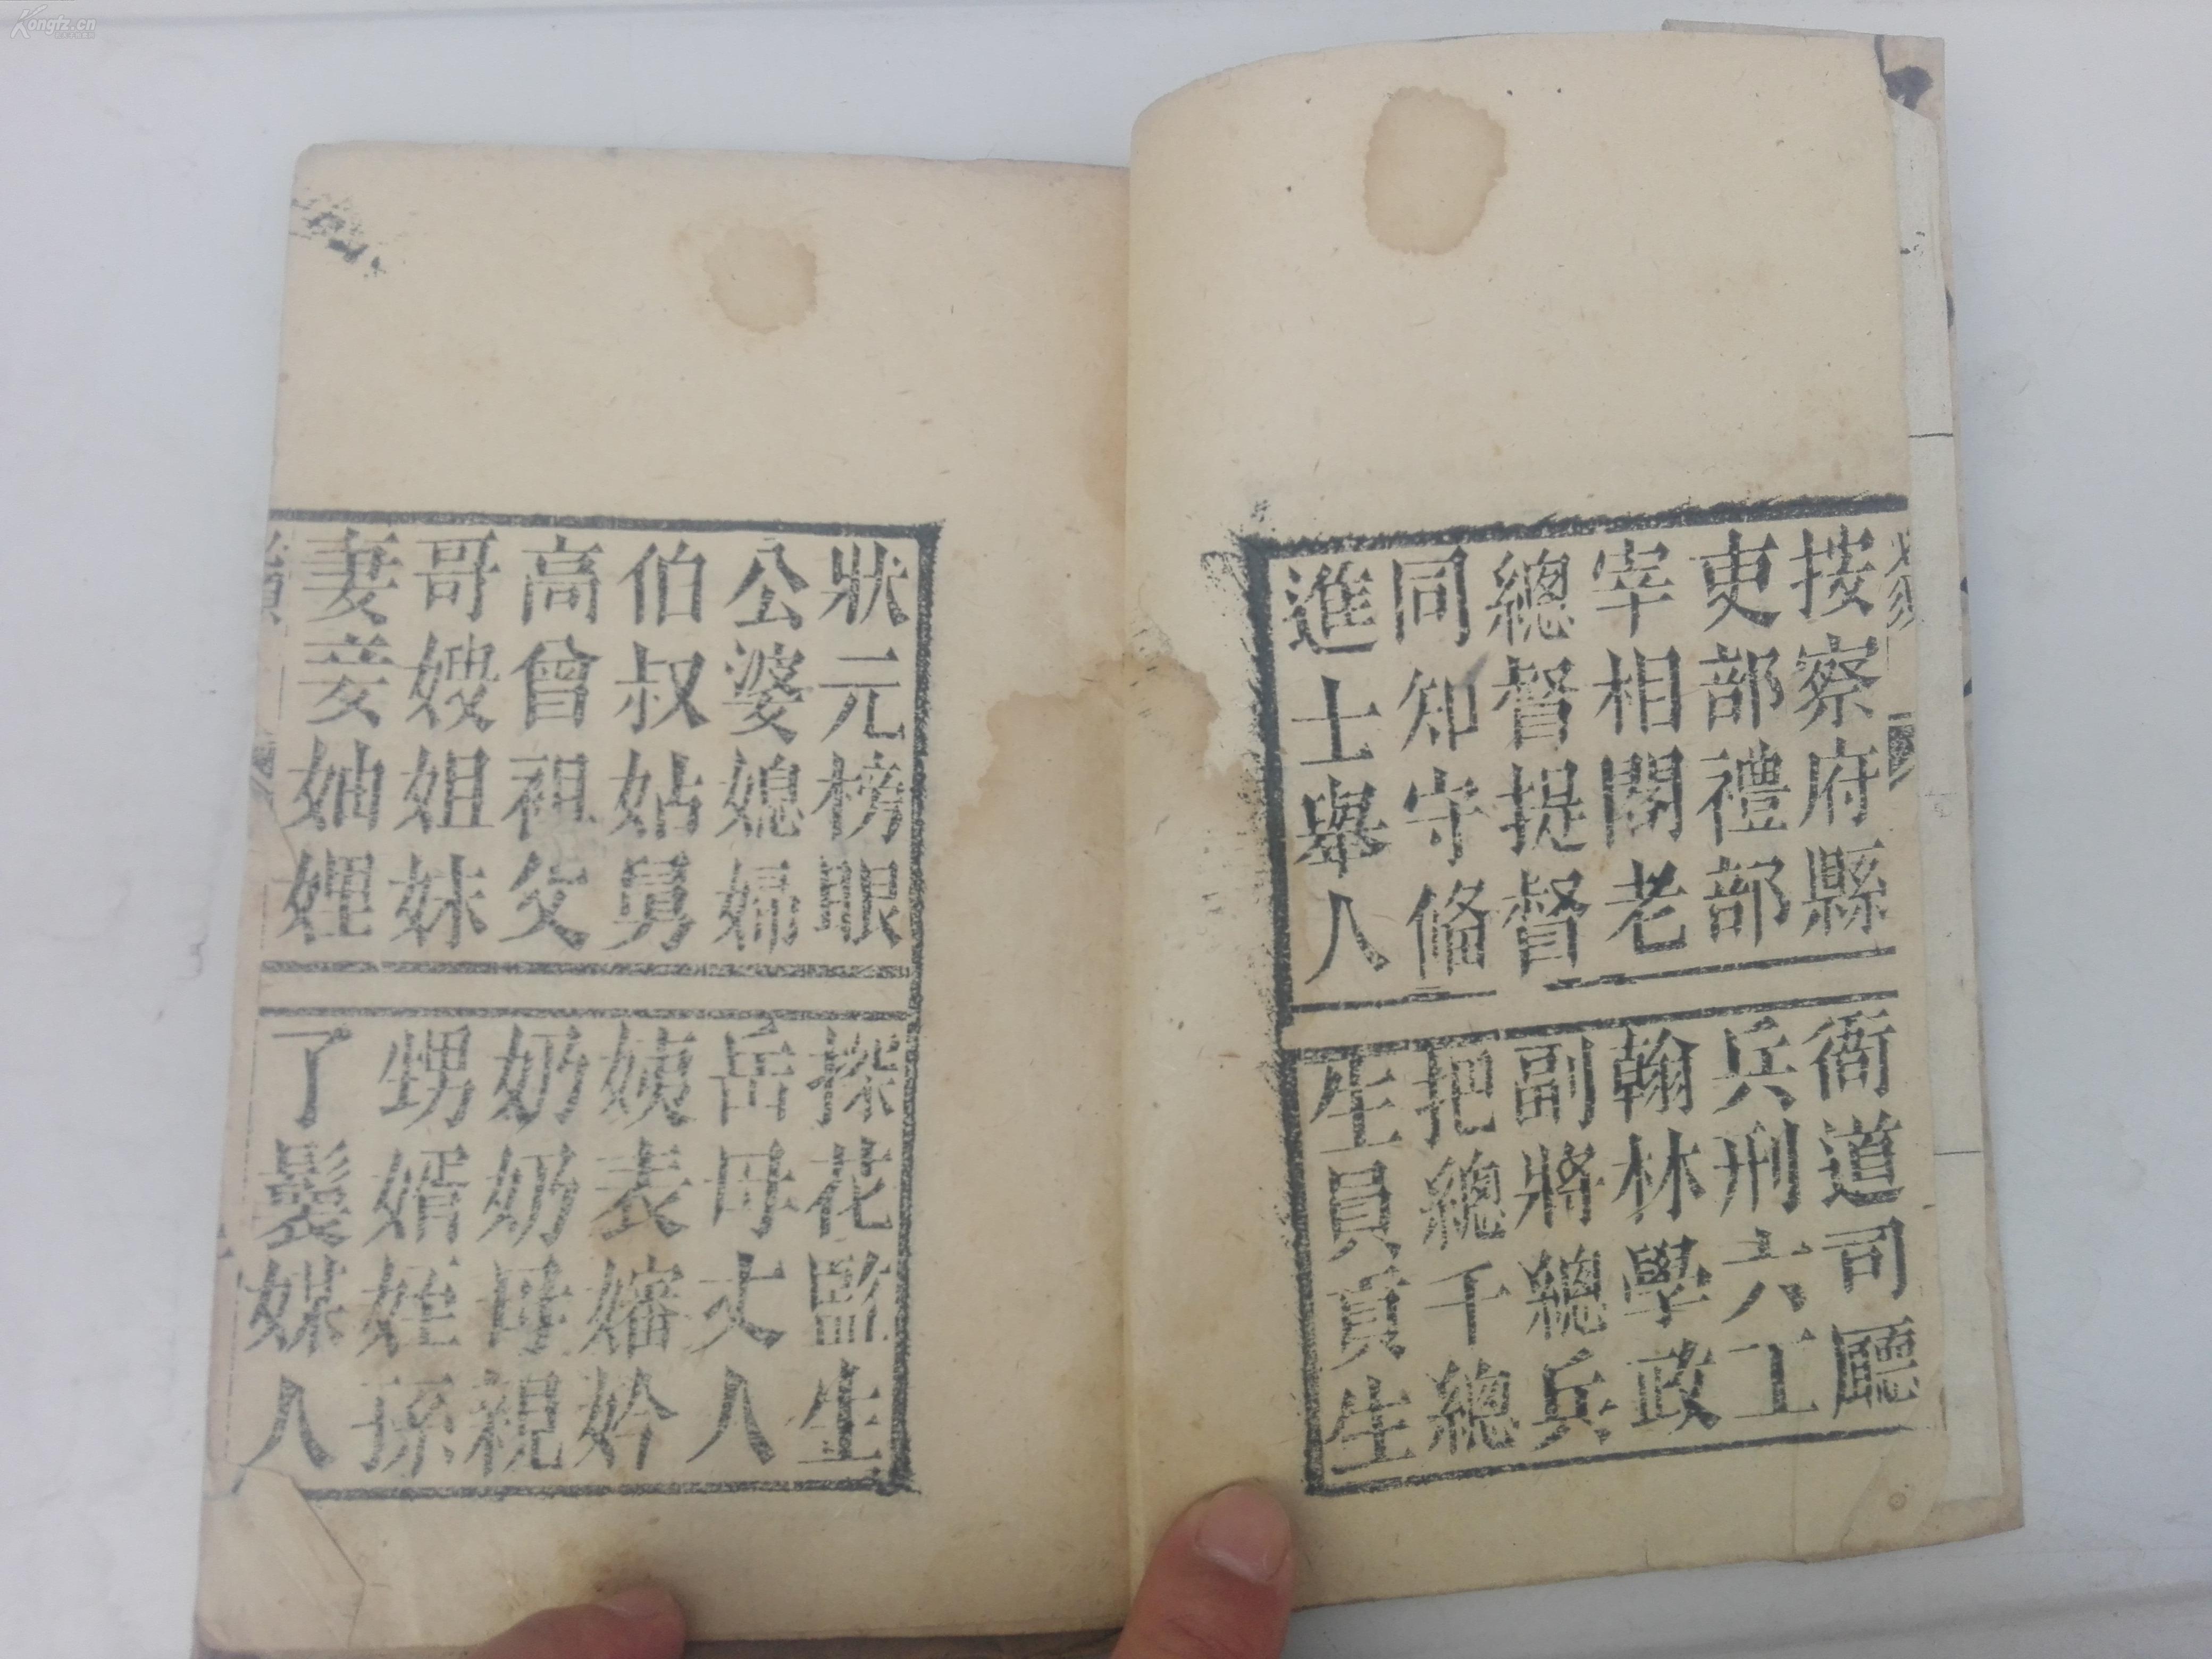 Kongfz.cn
按察府縣
衙道司廳
吏部禮部
兵刑六工
宰相閣老
翰林學政
總督提督
副將總兵
同知守俻
把總千總
進士舉人
生員貢生
狀元榜眼
探花監生
公婆媳婦
岳母丈人
伯叔姑舅
姨表嬸妗
高曾祖父
奶奶母親
哥嫂姐妹
甥婿姪孫
妻妾妯娌
了鬟媒人